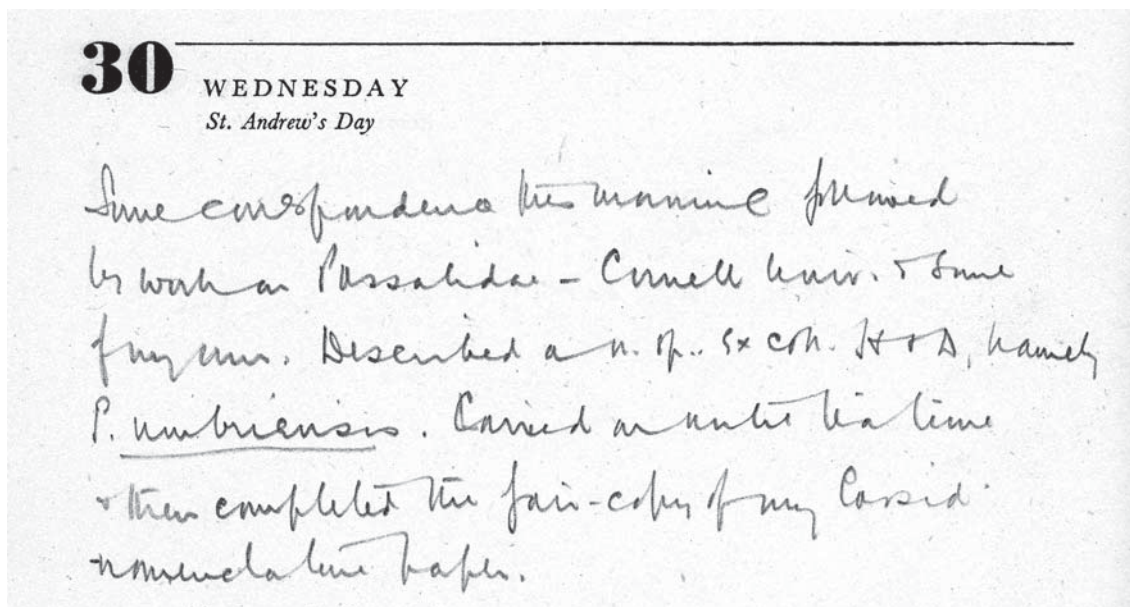 30
WEDNESDAY
St. Andrew's Day
Some correspondence this morning followed
by work on Passalidae - Cornell Univ. & some
of my own. Described a n. sp.. ex coll. H & D, namely
P. umbriensis. Carried on until tea time
& then completed the fair-copy of my Cassid
nomenclature paper.